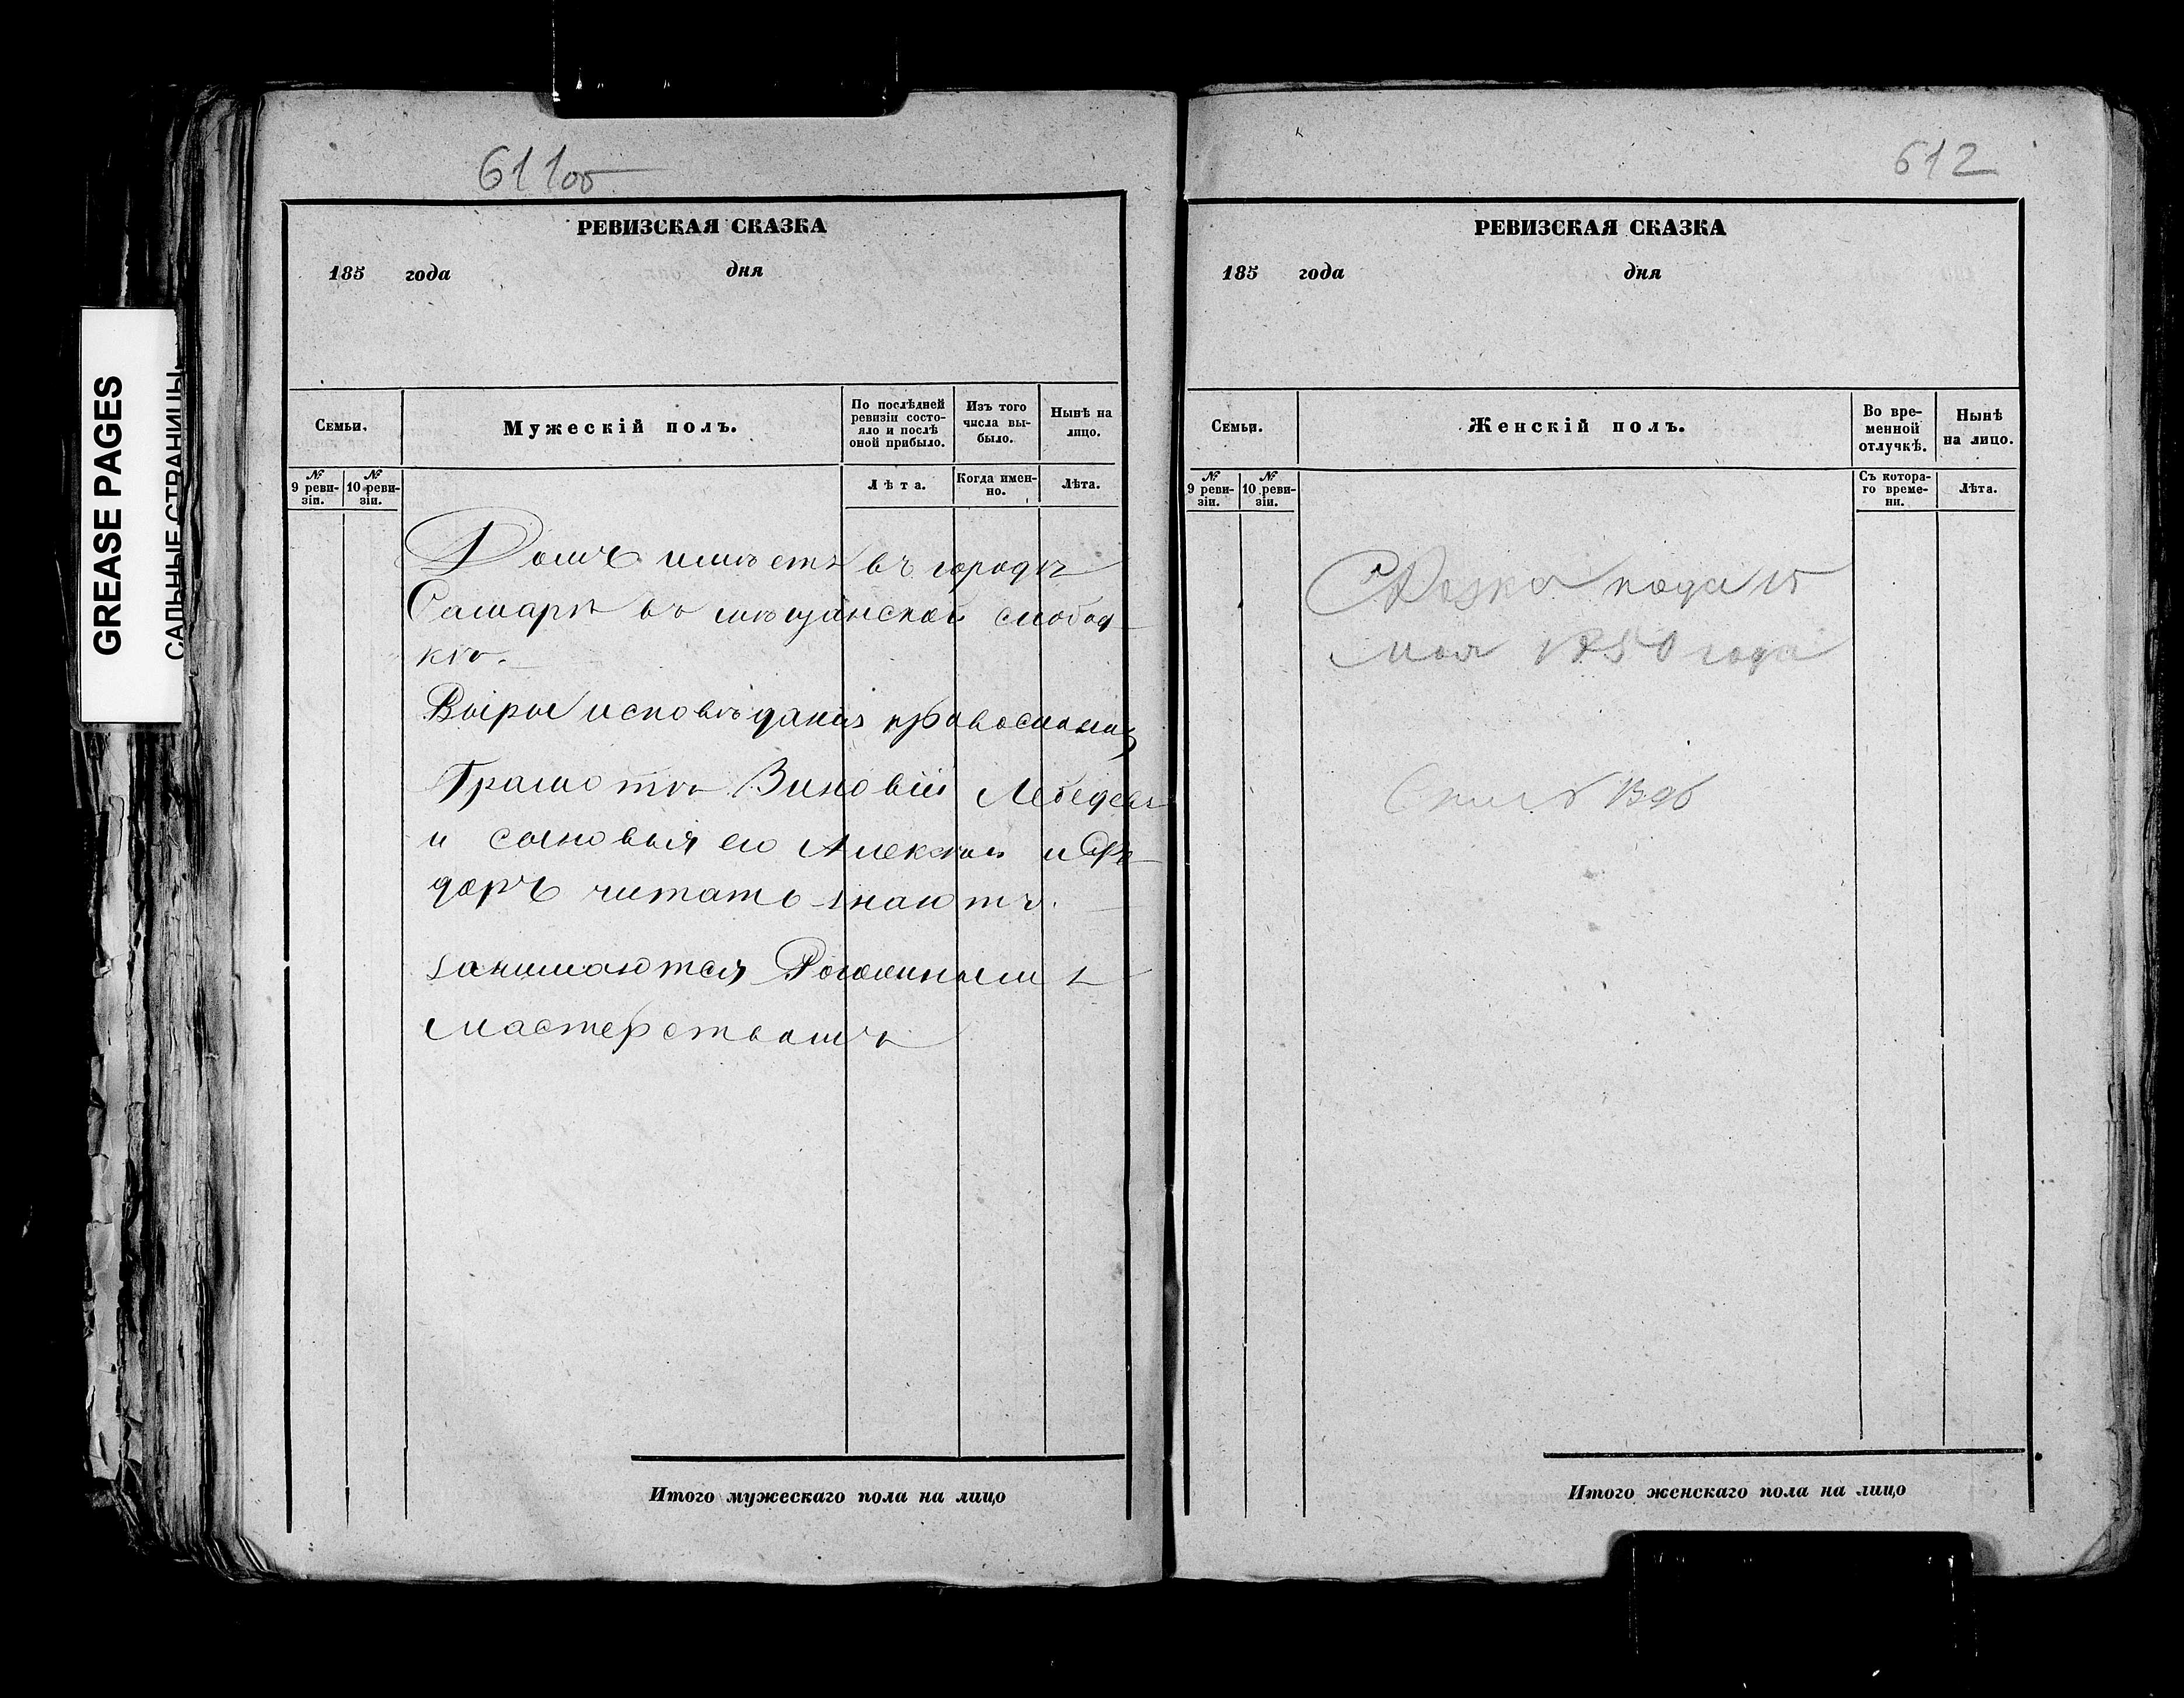 611об
РЕВИЗСКАЯ СКАЗКА
185 года дня
Семьи.
Мужескій полъ.
По послѣдней ревизіи состо-
яло и послѣ оной прибыло.
Изъ того числа вы-
было.
Нынѣ на лицо.
№ 9 реви-
зіи.
№ 10 реви-
зіи.
Лѣта.
Когда имен-
но.
Лѣта.
Домъ имѣетъ въ городѣ
Самарѣ въ мѣщанской слобод
кѣ.
Вѣры исповѣданія православн
Грамотѣ Зиновій Лебедевъ
и сыновья его Алексѣй и Фе
доръ читать знаютъ.
занимаются
мастерствомъ
Итого мужескаго пола на лицо
612
РЕВИЗСКАЯ СКАЗКА
185 года дня
Семьи.
Женскій полъ.
Во вре-
менной отлучкѣ.
Нынѣ на лицо.
№ 9 реви-
зіи.
№ 10 реви-
зіи.
Съ котора-
го време-
ни.
Лѣта.
Сказка
мая года
Итого женскаго пола на лицо
GREASE PAGES
САЛЬНЫЕ СТРАНИЦЫ